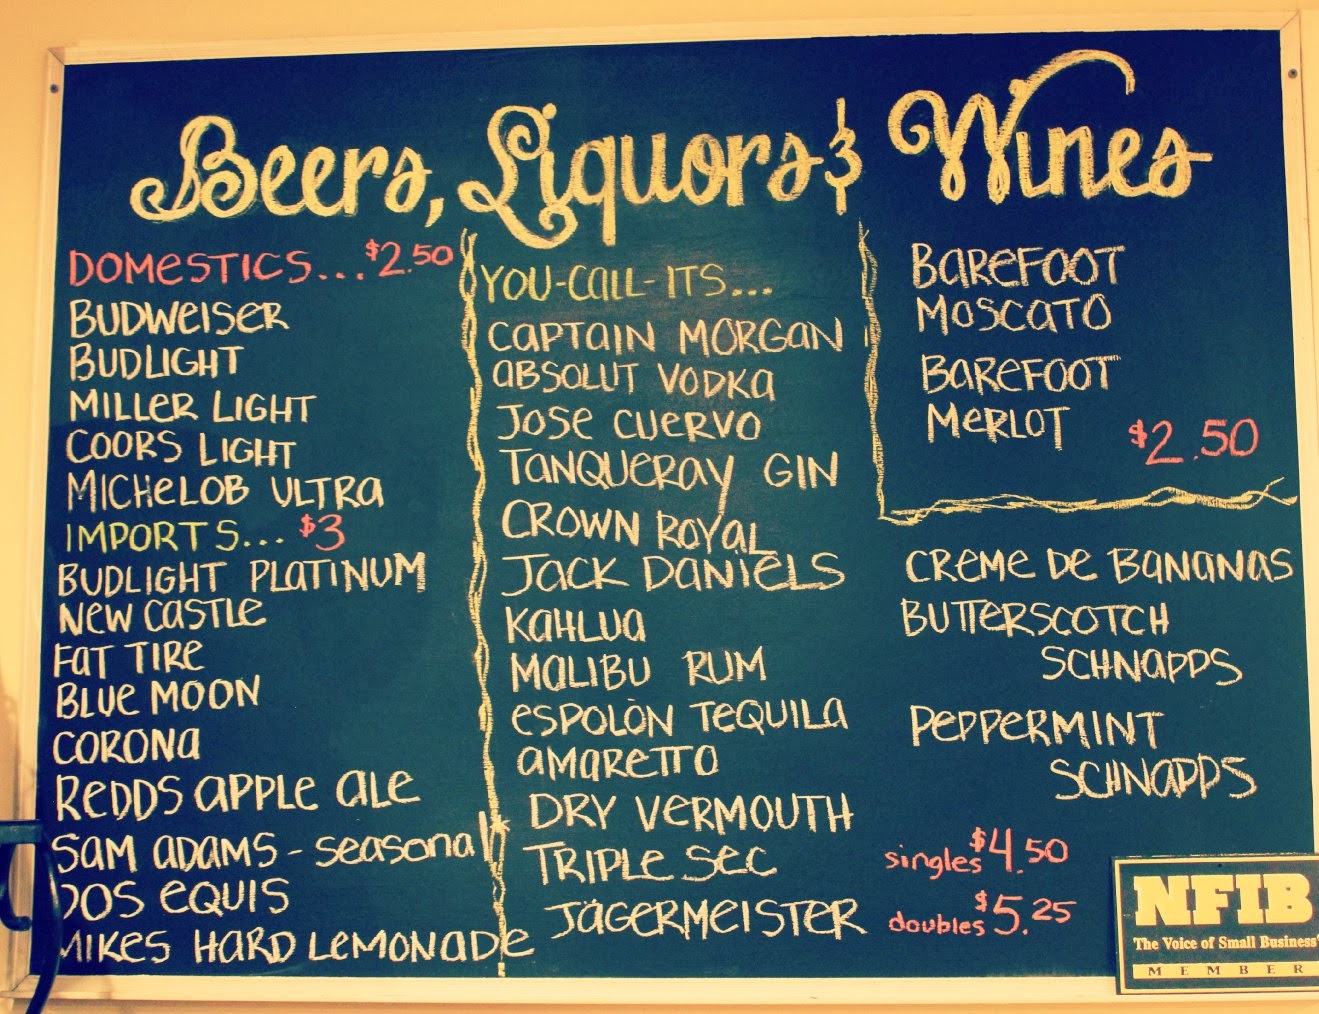 Beers, Liquors & Wines
DOMESTICS... $2.50
BUDWEISER
BUDLIGHT
MILLER LIGHT
COORS LIGHT
MICHELOB ULTRA
IMPORTS... $3
BUDLIGHT PLATINUM
NEW CASTLE
FAT TIRE
BLUE MOON
CORONA
REDDS APPLE ALE
SAM ADAMS - seasonal
DOS EQUIS
MIKES HARD LEMONADE
YOU-CALL-ITS...
CAPTAIN MORGAN
ABSOLUT VODKA
JOSE CUERVO
TANQUERAY GIN
CROWN ROYAL
JACK DANIELS
KAHLUA
MALIBU RUM
ESPOLÒN TEQUILA
AMARETTO
DRY VERMOUTH
TRIPLE SEC
JÄGERMEISTER
BAREFOOT
MOSCATO
BAREFOOT
MERLOT
$2.50
CREME DE BANANAS
BUTTERSCOTCH
SCHNAPPS
PEPPERMINT
SCHNAPPS
singles $4.50
doubles $5.25
NFIB
The Voice of Small Business
MEMBER